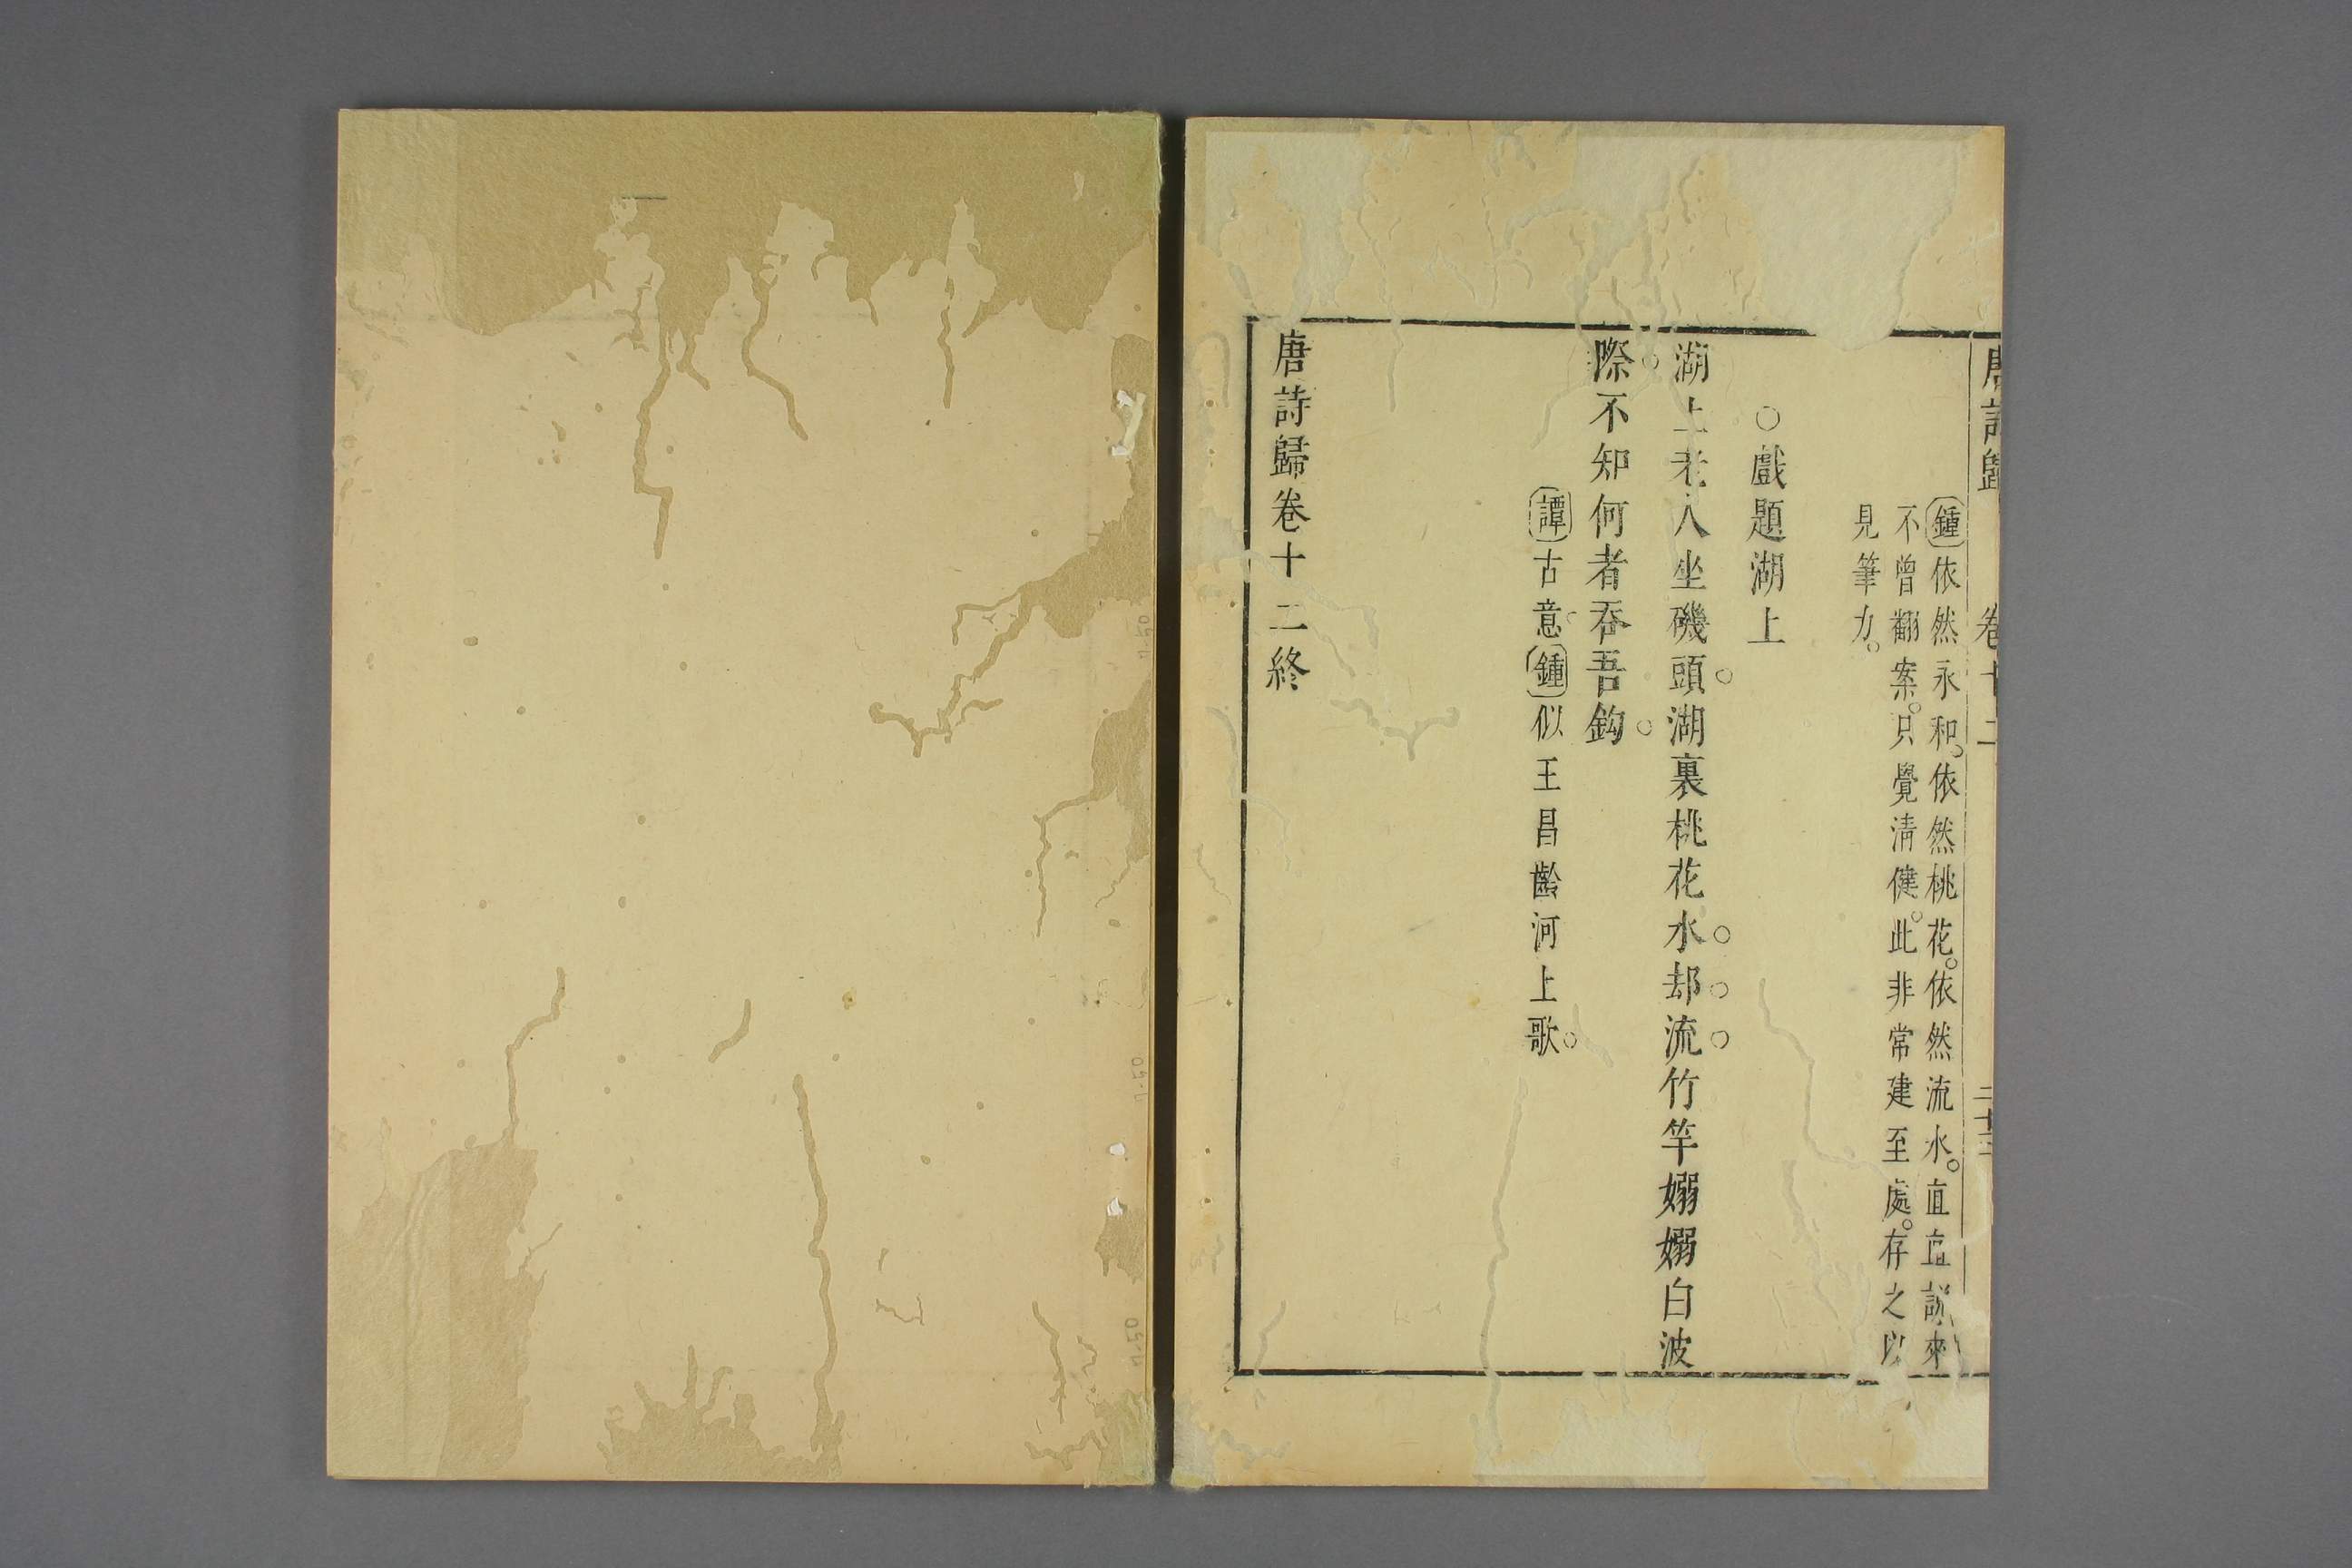 唐詩歸 卷十二 二十三
鍾依然永和。依然桃花。依然流水。直直說來
不曾翻案。只覺清健。此非常建至處。存之以
見筆力。
○戲題湖上
湖上老人坐磯頭。湖裏桃花水却流竹竿嫋嫋白波
際。不知何者吞吾鈎。
譚古意。鍾似王昌齡河上歌。
唐詩歸卷十二終